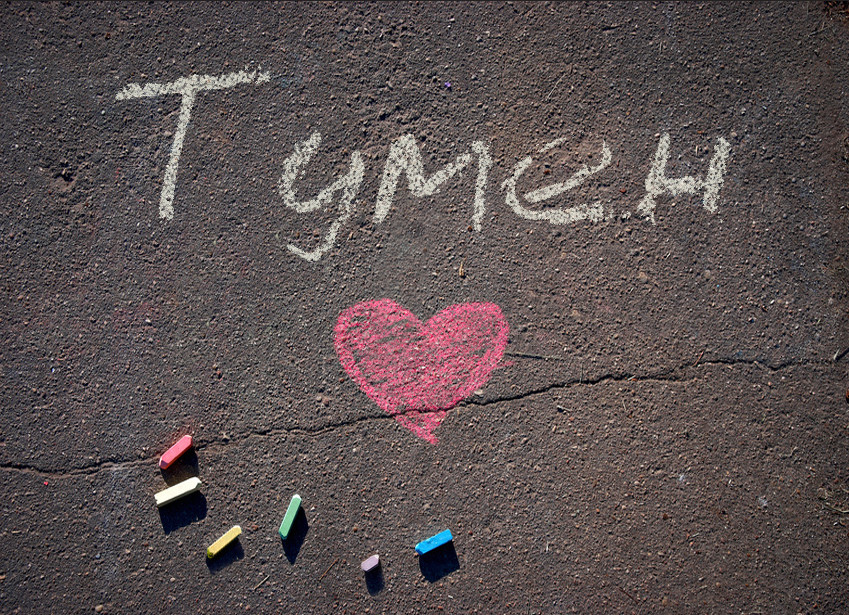 Тумен